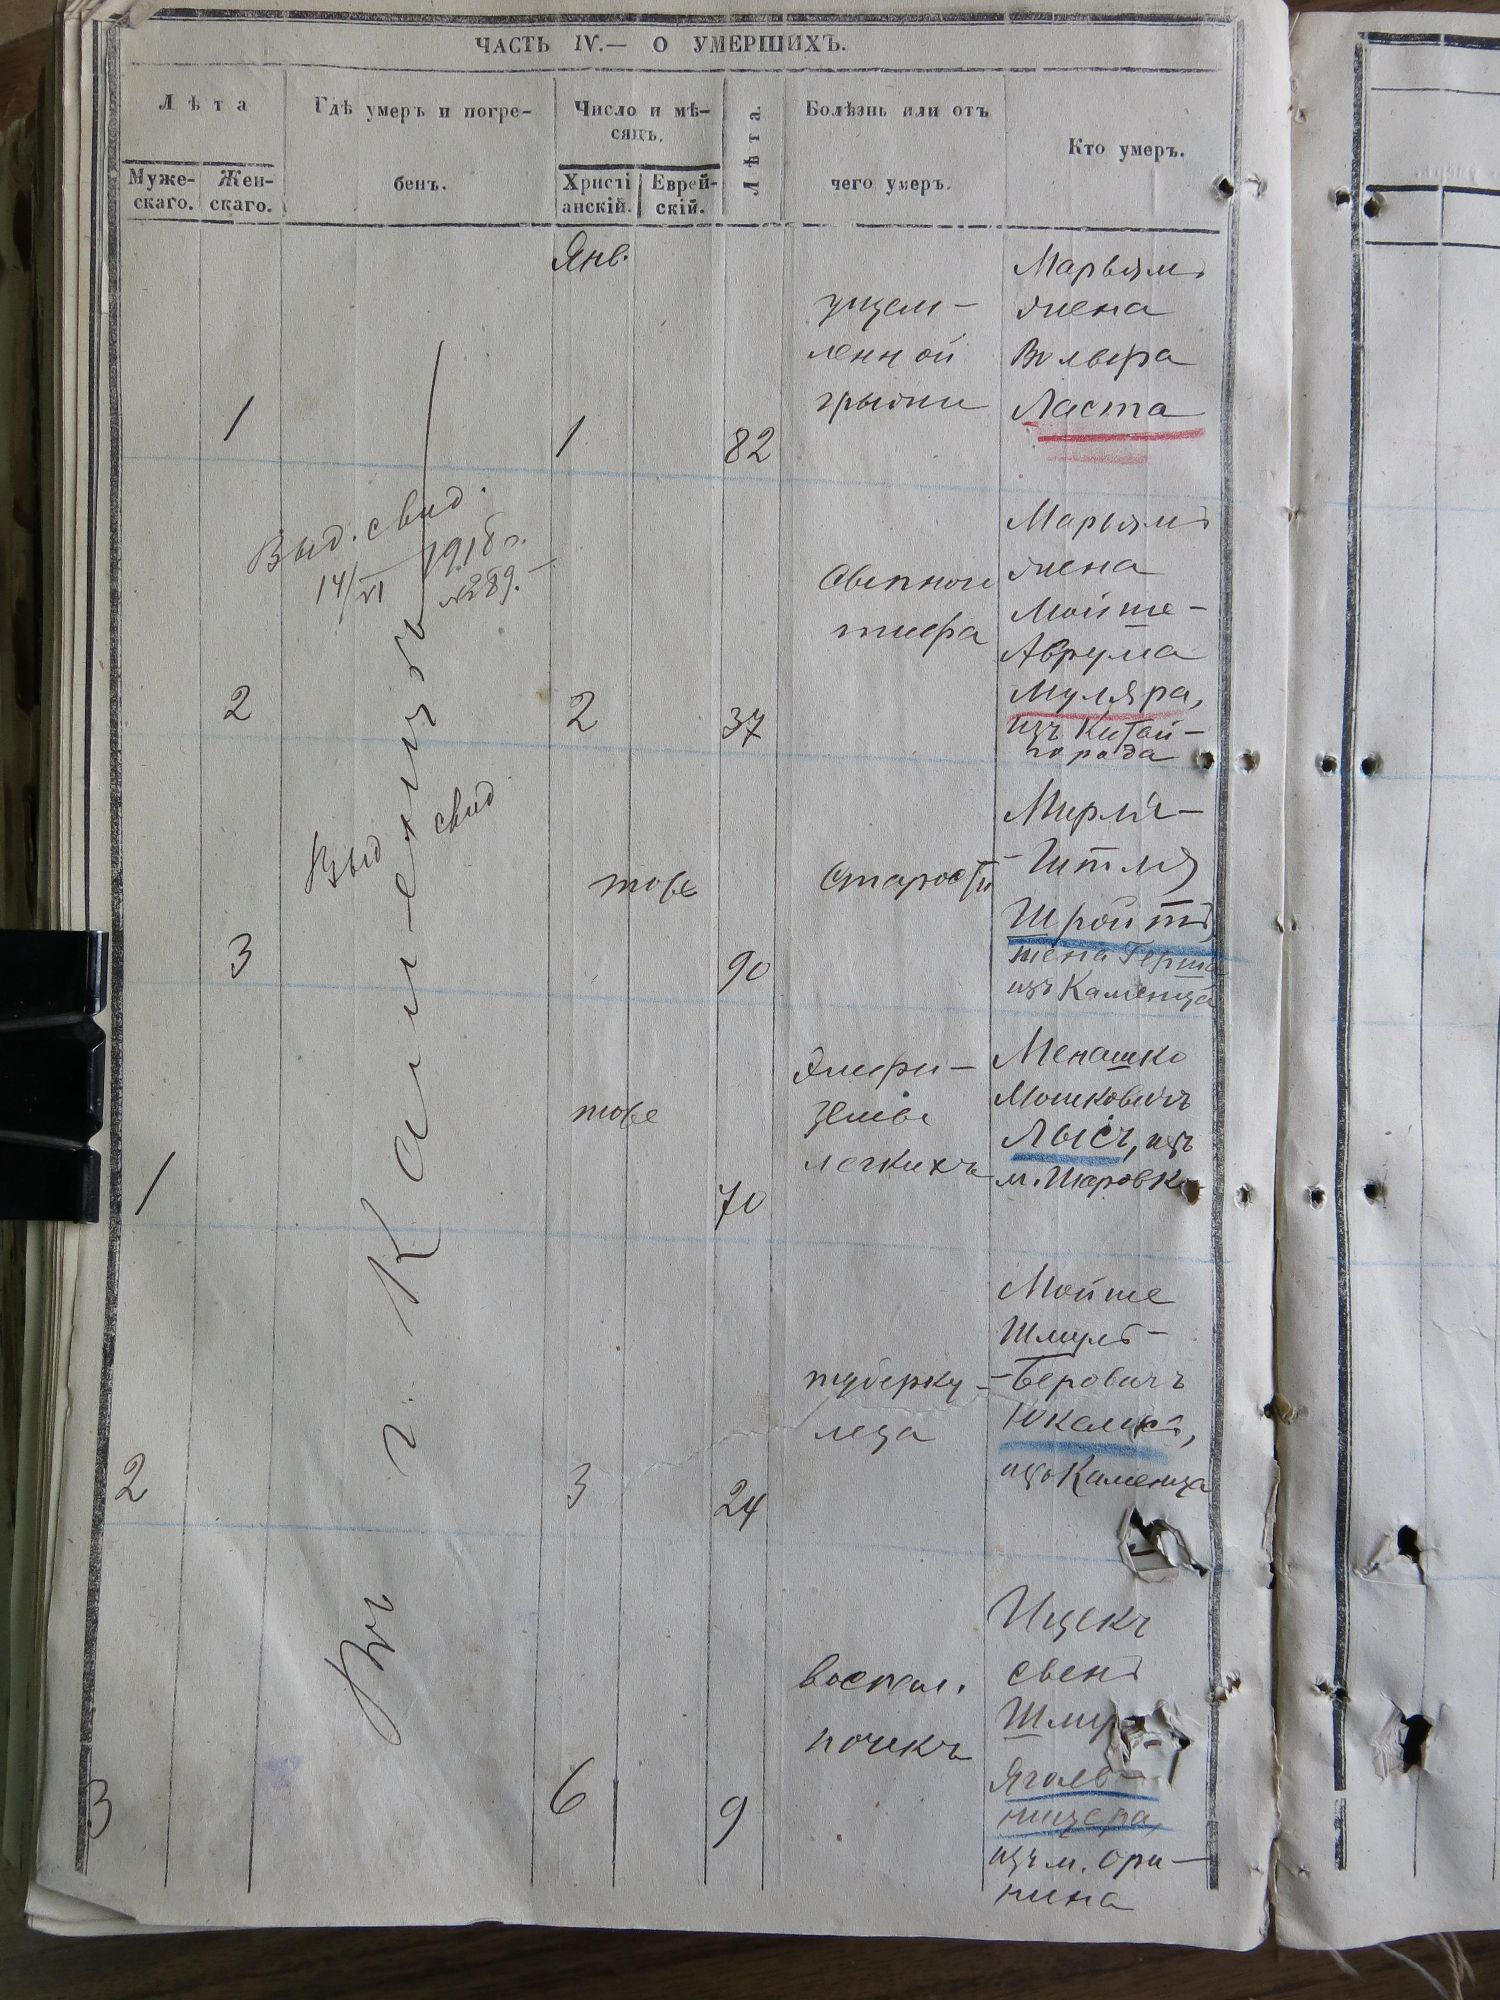 ЧАСТЬ IV.— О УМЕРШИХЪ.
Лѣта
Муже-
скаго.
Жен-
скаго.
Гдѣ умеръ и погре-
бенъ.
Число и мѣ-
сяцъ.
Христі
анскій.
Еврей-
скій.
Лѣта.
Болѣзнь или отъ
чего умеръ.
Кто умеръ.
Въ г. Каменцѣ
Янв.
1
1
82
ущем-
ленной
грыжи
Марьямъ
жена
Вольфа
Ласта
Выд. свид.
14/VI 1918 г.
№289.
2
2
37
Сыпного
тифа
Марьямъ
жена
Мойше-
Аврума
Муляра,
изъ Китай-
города
Выд свид
3
тоже
90
Старости
-Штля
Шройтъ,
жена Герша
изъ Каменца
1
тоже
70
Эмфи-
земы
легкихъ
Менашко
Мошковичъ
Лысъ, изъ
м. Шаровки
2
3
24
туберку-
леза
Мойше
Шмуль-
-Беровичъ
изъ Каменца
3
6
9
воспал.
почекъ
Ицекъ
сынъ
Шмуля
Яголь-
ницера,
изъ м. Ори-
нина